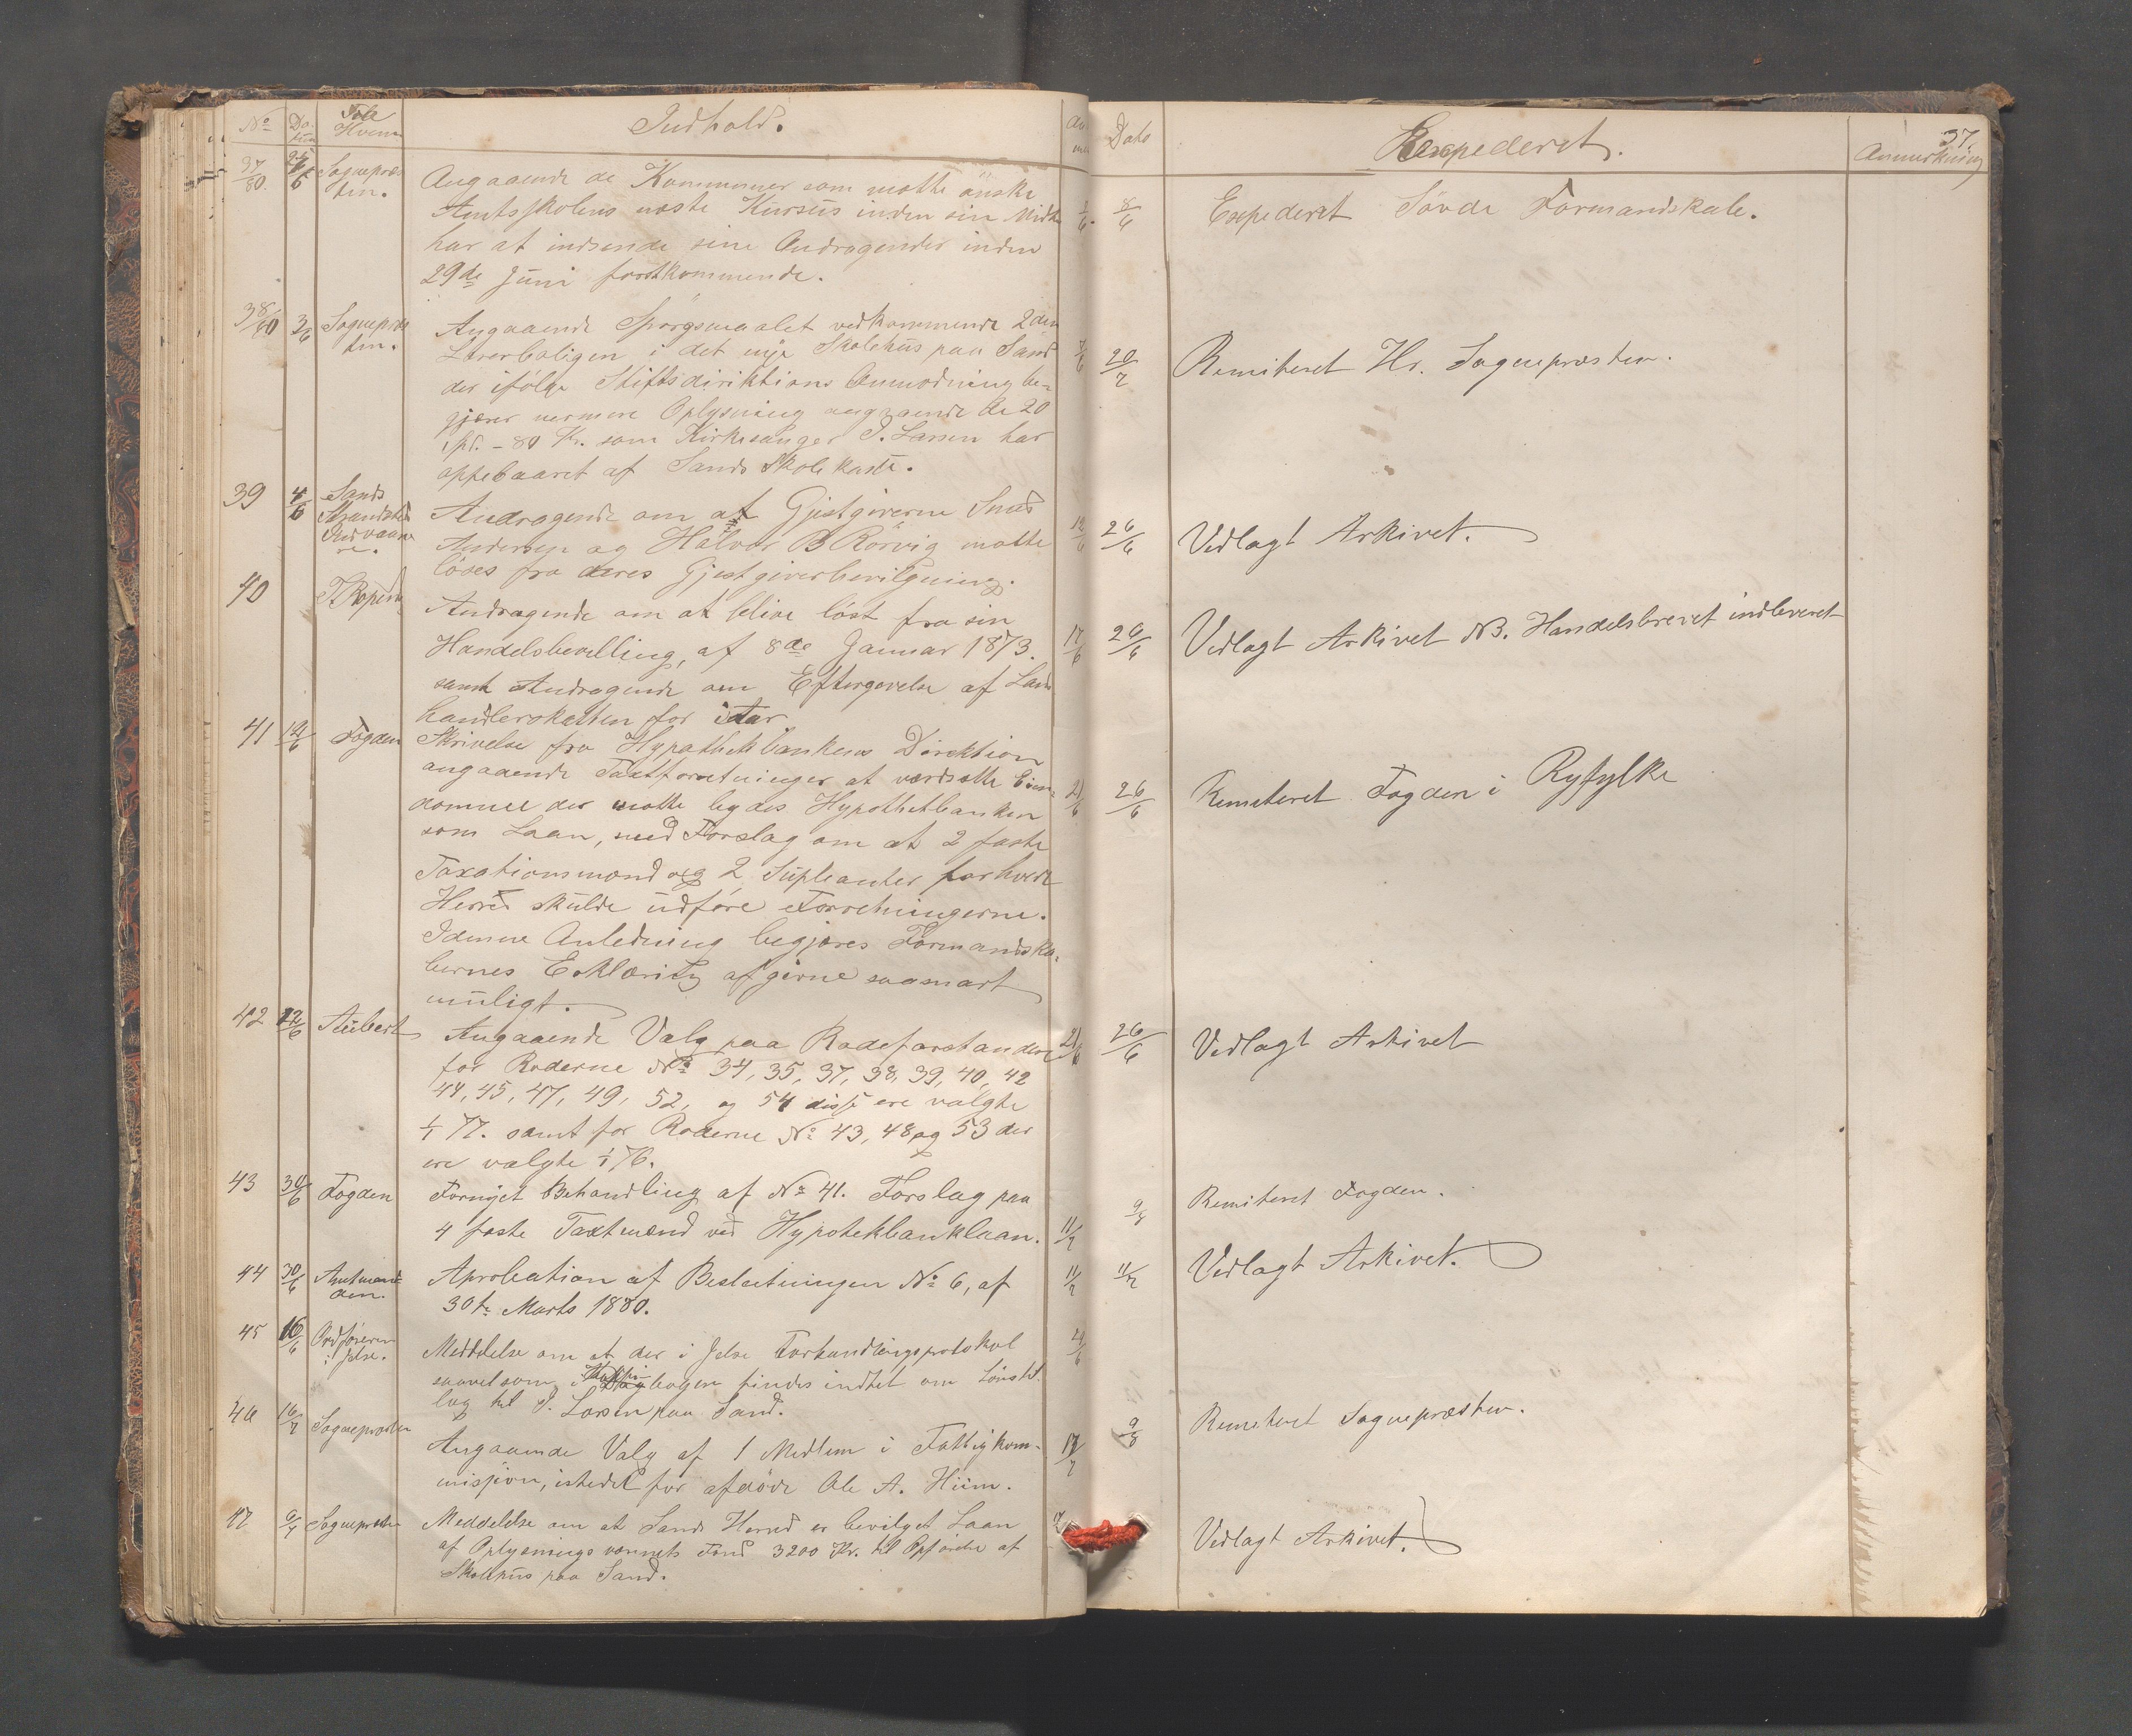 No Datum Fole Hvem Indhold. Dato Expederet. Anmærkning 37.
37/80. 24/6 Sognepræsten. Angaaende de Kommuner som motte önske
Amtsskolens næste Kursus inden sin Midte 8/6 Expederet Sövde Formandskab.
har at indsende sine Andragender inden
29de Juni förstkommende.
38/80 3/6 Sognepræsten. Angaaende Spörgsmaalet vedkommende 2den
Lærerboligen i det nye Skolehus paa Sand 7/6 20/7 Remiteret Hr. Sognepræsten.
der ifölge Stiftsdiriktions Anmodning be-
gjærer nermere Oplysning angaaende de 20
spd. - 80 Kr. som Kirkesanger J. Larsen har
oppebaaret af Sands Skolekasse.
39 4/6 Sands Strandsted Andragende om at Gjestgiverne Knud
Andersen og Halvor B Rörvig motte 12/6 26/6 Vedlagt Arkivet.
löses fra deres Gjestgiverbevilgning.
40 T. Ropeid Andragende om at blive löst fra sin
Handelsbevelling, af 8de Januar 1873. 17/6 26/6 Vedlagt Arkivet NB. Handelsbrevet indleveret
samt Andragende om Eftergivelse af Land
handlerskatten for iaar
41 14/6 Fogden Skrivelse fra Hypothekbankens Direktion
angaaende Taxtforretninger at værdsætte Eien-
domme der motte bydes Hypothetbanken 21/6 26/6 Remiteret Fogden i Ryfylke
som Laan, med Forslag om at 2 faste
Taxationsmænd og 2 Supleanter for hvert
Herred skulde udföre Forretningerne.
I denne Anledning begjæres Formandska-
bernes Erklæring afgivne saasnart
muligt.
42 12/6 Aubert Angaaende Valg paa Rodeforstandere 21/6 26/6 Vedlagt Arkivet
for Roderne No 34, 35, 37, 38, 39, 40, 42
44, 45, 47, 49, 52, og 54 disse ere valgte
1/1 77. samt for Roderne No 43, 48 og 53 der
ere valgte 1/1 76.
43 30/6 Fogden Fornyet Behandling af No 41. Forslag paa 9/8 Remiteret Fogden.
4 faste Taxtmænd ved Hypotekbanklaan. 11/7
44 30/6 Amtmanden. Aprobation af Beslutningen No 6, af 11/7 11/7 Vedlagt Arkivet.
30te Marts 1880.
45 16/6 Ordföreren i Jelse. Meddelelse om at der i Jelse Forhandlingsprotokol 21/6
saavelsom i Kopibogen findes indtet om Lönstil-
læg til J. Larsen paa Sand.
46 16/7 Sognepræsten Angaaende Valg af 1 Medlem i Fattigkom- 17/7 9/8 Remiteret Sognepræsten.
misjion, istedet for afdöde Ole A. Hiim.
47 9/7 Sognepræsten Meddelelse om at Sands Herred er bevilget Laan
af Oplysningsvæsnets Fond 3200 Kr. til Opförelse af Vedlagt Arkivet.
Skolehus paa Sand.